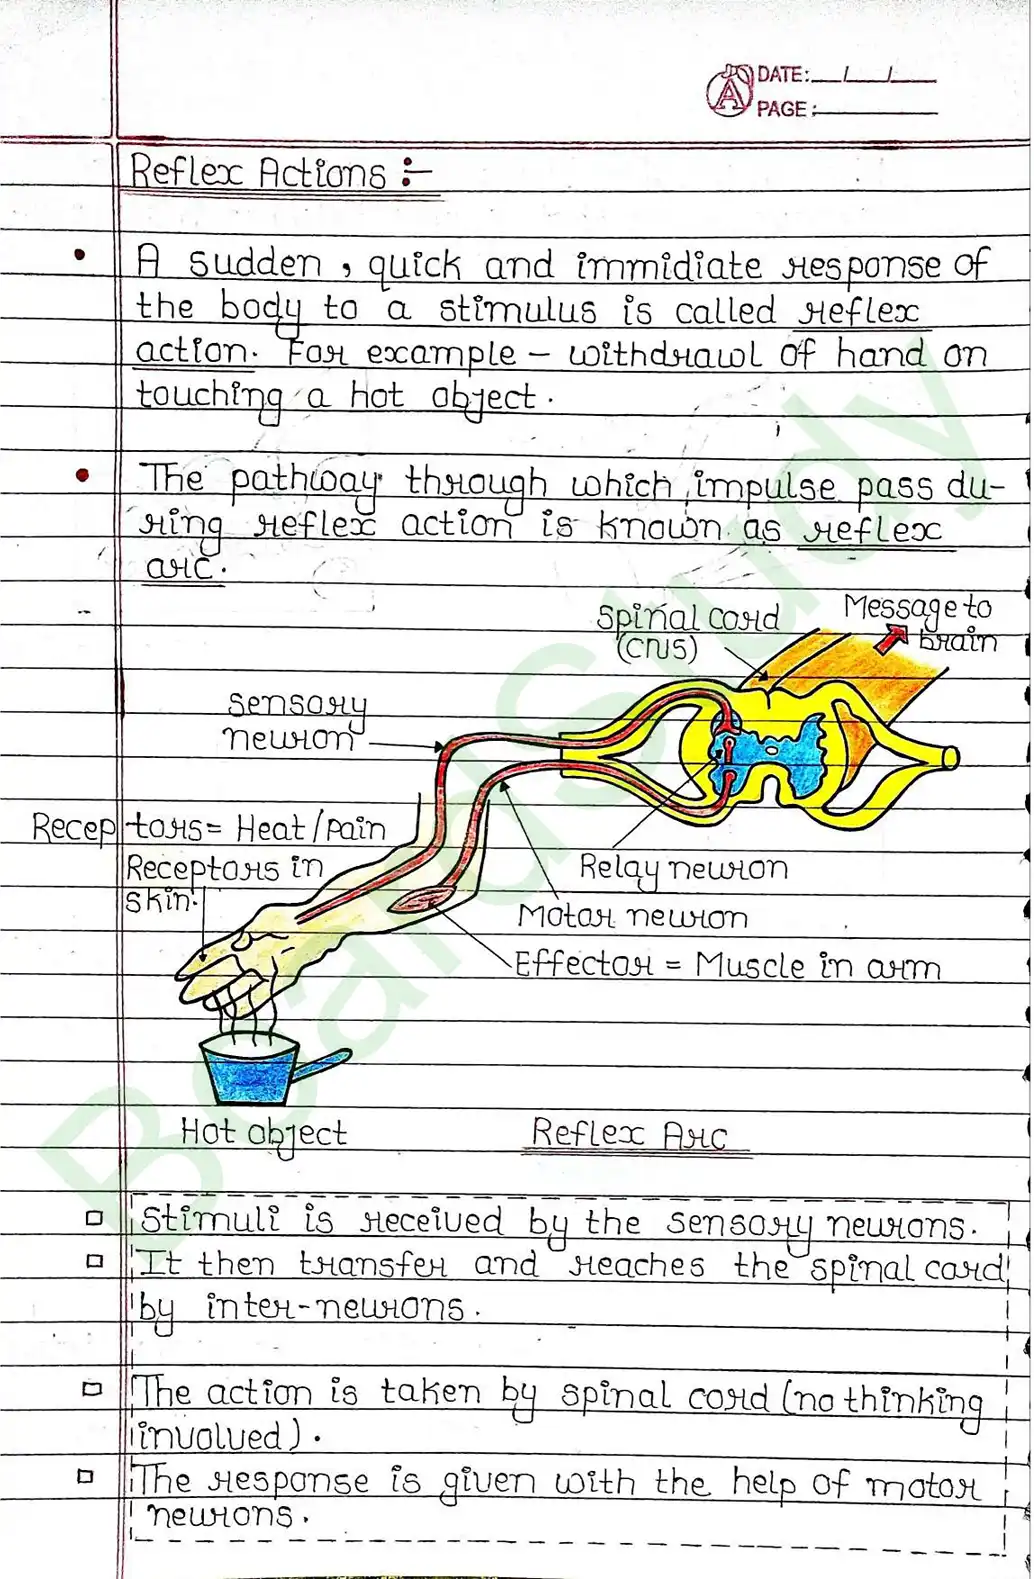 DATE:__/__/__
PAGE:______
Reflex Actions :-
• A sudden, quick and immidiate response of
the body to a stimulus is called reflex
action. For example – withdrawl of hand on
touching a hot object.
• The pathway through which impulse pass du-
ring reflex action is known as reflex
arc.
Spinal cord
(CNS)
Message to
brain
Sensory
neuron
Receptors = Heat/pain
Receptors in
skin.
Relay neuron
Motor neuron
Effector = Muscle in arm
Hot object
Reflex Arc
Stimuli is received by the sensory neurons.
It then transfer and reaches the spinal cord
by inter-neurons.
The action is taken by spinal cord (no thinking
involved).
The response is given with the help of motor
neurons.
BoardStudy